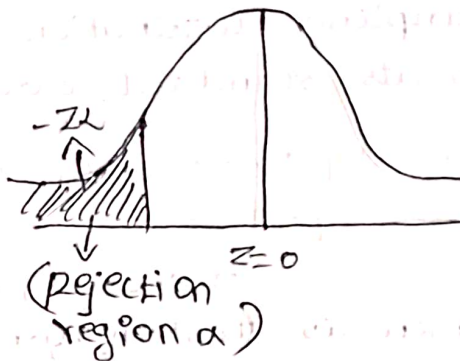 -Zα
Z=0
(Rejection
region α)